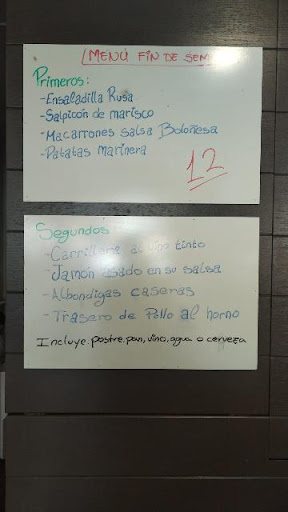 MENÚ FIN DE SEM
Primeros:
-Ensaladilla Rusa
-Salpicón de marisco
-Macarrones salsa Boloñesa
-Patatas marinera
12
Segundos
-Carrillera al vino tinto
-Jamón asado en su salsa
-Albondigas caseras
-Trasero de Pollo al horno
Incluye: postre, pan, vino, agua o cerveza